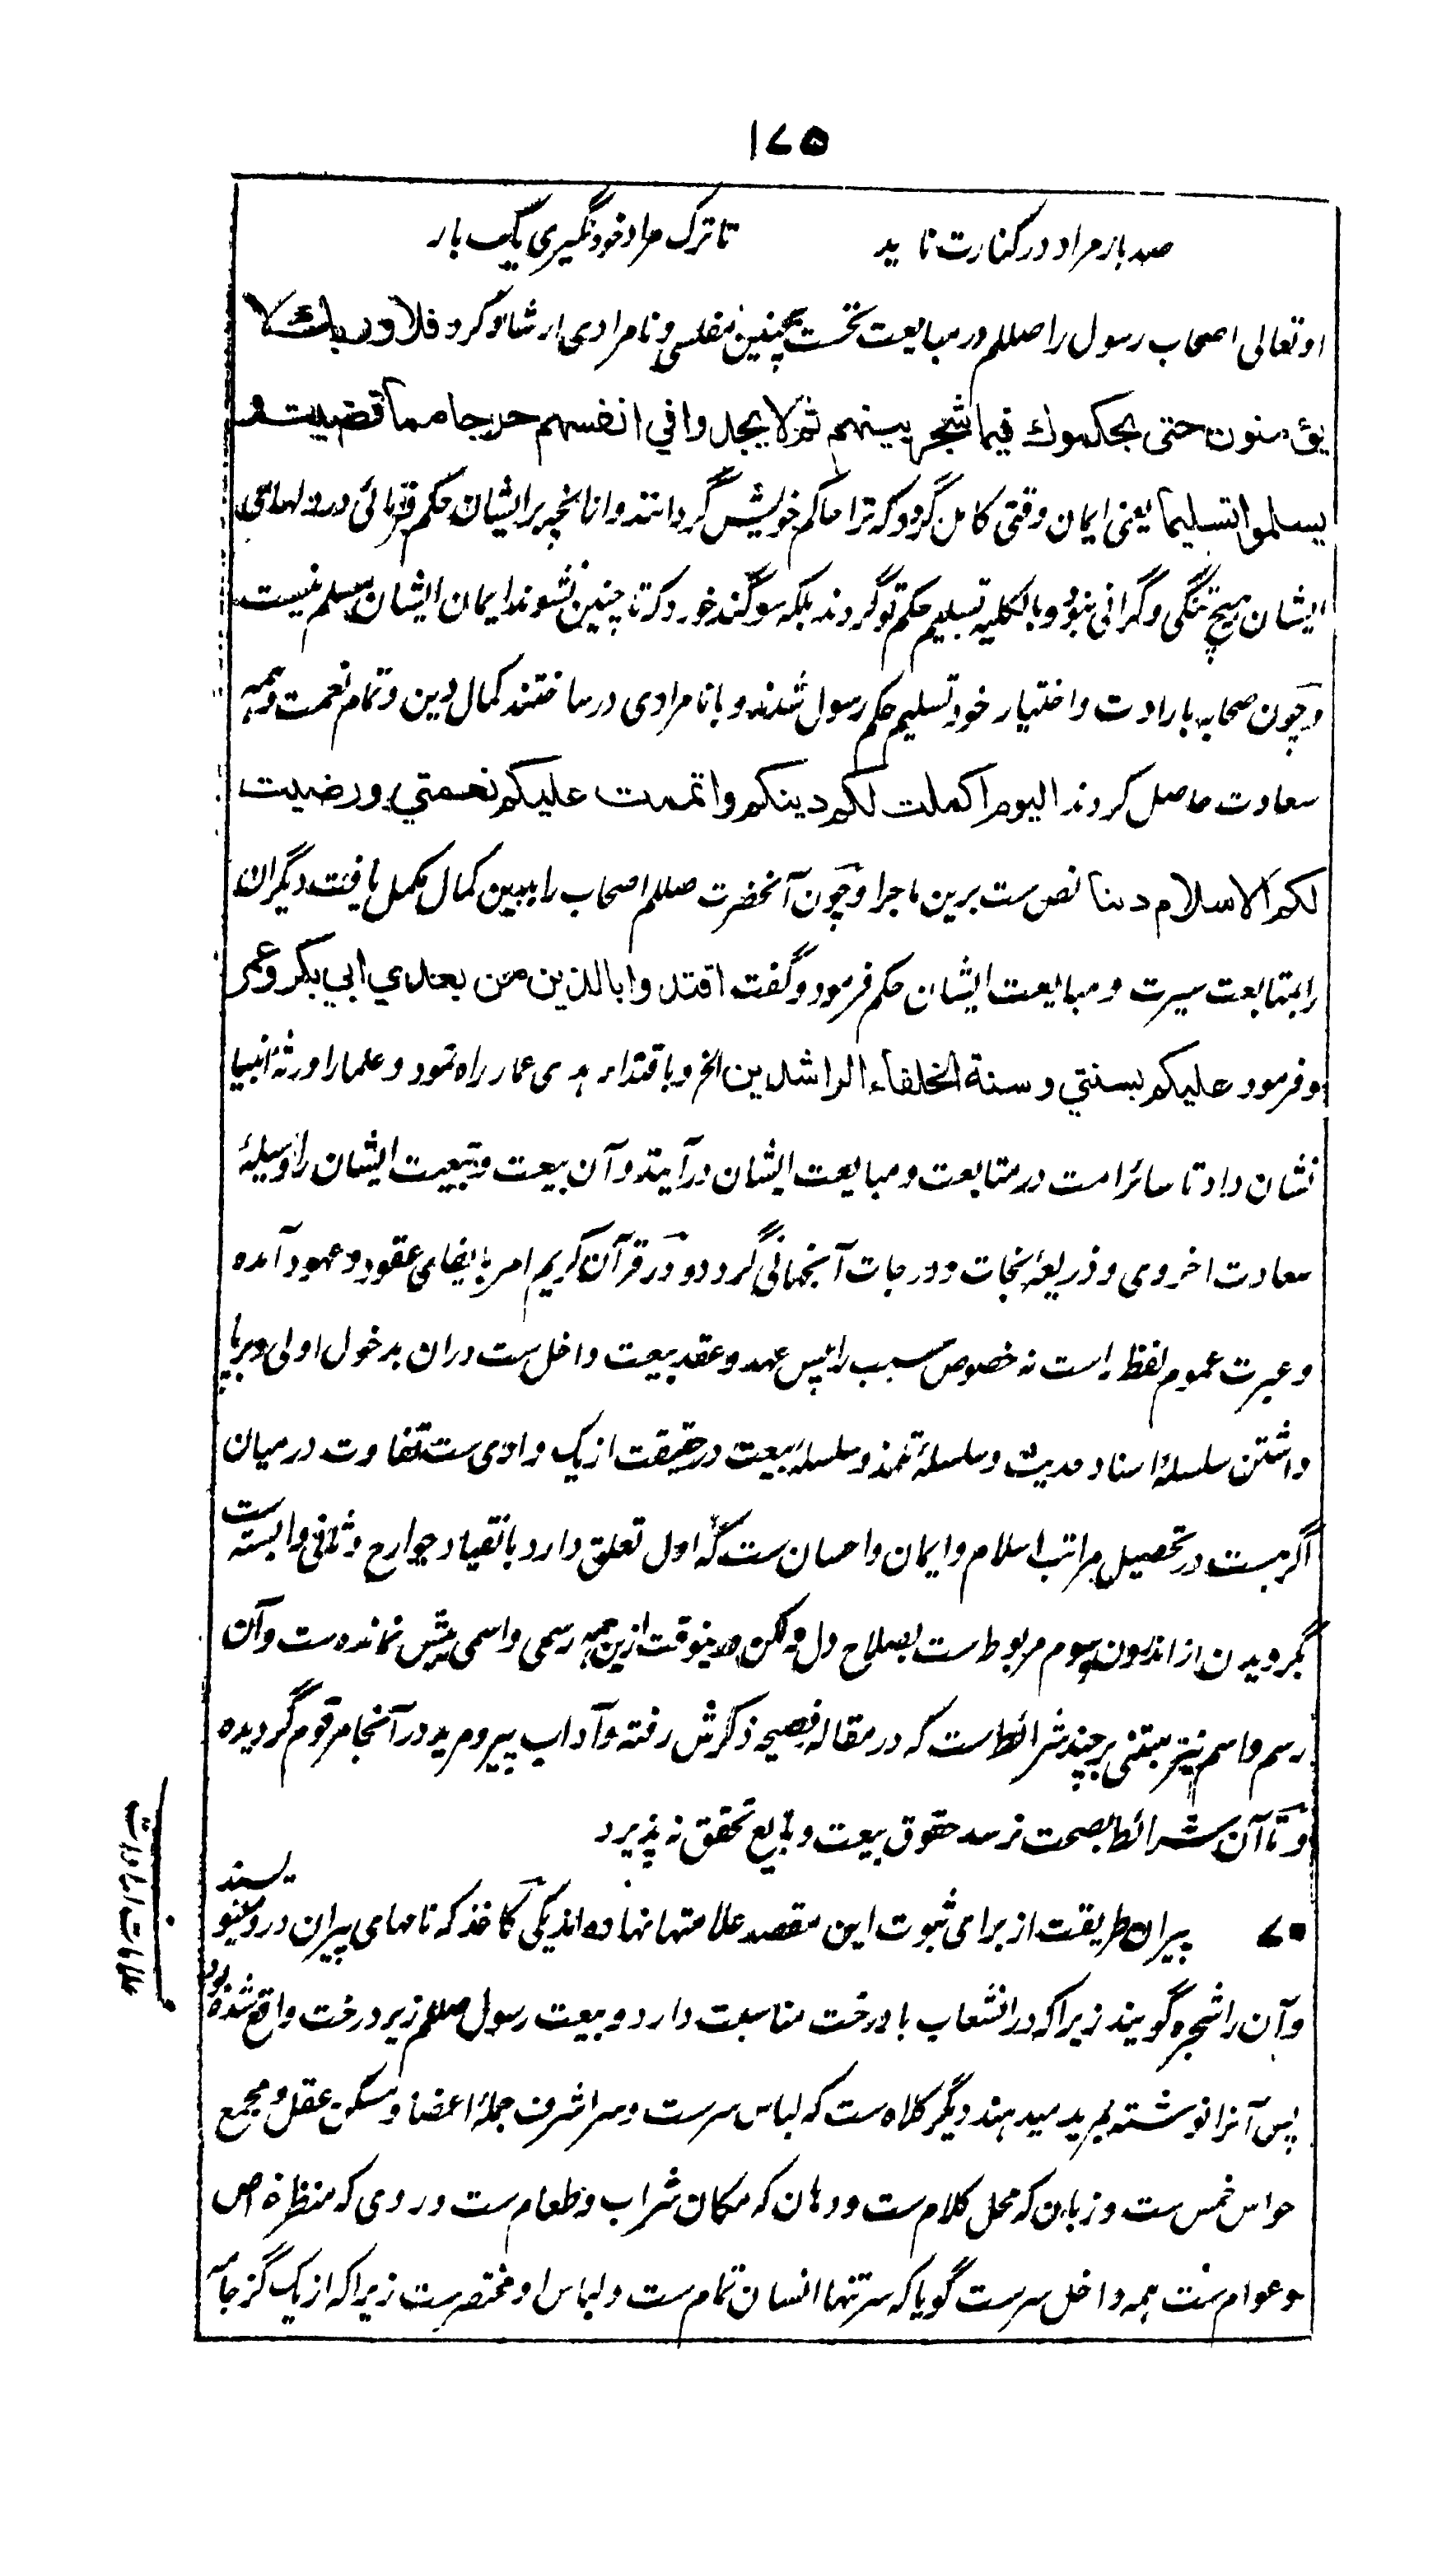 ۱۷۵
صد بار مراد در کنارت ناید تا ترک مراد خود نگیری یکبار
او تعالی اصحاب رسول را صللم در مبایعت نخست بچنین مفلسی و نامرادی ارشاد کرد فلا وربك لا
یؤمنون حتی یحکموك فیما شجر بینهم ثم لا یجدوا في انفسهم حرجا مما قضیت و
یسلموا تسلیما یعنی ایمان وقتی کامل گردد که ترا حاکم خویش گردانند و از انچه بر ایشان حکم فرمائی در دلهای
ایشان هیچ تنگی و گرانی نبود و بالکلیه تسلیم حکم تو گردند بلکه سوگند خورد که تا چنین نشوند ایمان ایشان مسلم نیست
و چون صحابه بارادت و اختیار خود تسلیم حکم رسول شدند و با نامرادی در ساختند کمال دین و تمام نعمت و همه
سعادت حاصل کردند الیوم اکملت لکم دینکم واتممت علیکم نعمتي ورضیت
لکم الاسلام دینا نص ست برین ماجرا و چون آنحضرت صللم اصحاب را ببین کمال مکمل یافت دیگران
را بمتابعت سیرت و مبایعت ایشان حکم فرمود و گفت اقتدوا بالذین من بعدي ابي بکر وعمر
و فرمود علیکم بسنتي وسنة الخلفاء الراشدین الخ و باقتداء هدی عمار راه نمود و علما را ورثهٔ انبیا
نشان داد تا سائر امت در متابعت و مبایعت ایشان درآیند و آن بیعت و تبعیت ایشان را وسیلهٔ
سعادت اخروی و ذریعهٔ نجات و درجات آنجهانی گردد و در قرآن کریم امر بایفای عقود و عهود آمده
و عبرت عموم لفظ راست نه خصوص سبب را پس عهد و عقد بیعت داخل ست دران بدخول اولی و برپا
داشتن سلسلهٔ اسناد حدیث و سلسلهٔ تلمذ و سلسلهٔ بیعت در حقیقت از یک وادی ست تفاوت در میان
اگر هست در تحصیل مراتب اسلام و ایمان و احسان ست که اول تعلق دارد بانقیاد جوارح و ثانی وابسته ست
بگرویدن از اندرون و سوم مربوط ست بصلاح دل و لکن درینوقت ازین همه رسمی و اسمی بیش نمانده ست و آن
رسم و اسم نیز مبتنی بر چند شرائط ست که در مقاله فصیحه ذکرش رفته و آداب پیر و مرید در آنجا مرقوم گردیده
و تا آن شرائط بصحت نرسد حقوق بیعت و بایع تحقق نه پذیرد
۷۰ پیران طریقت از برای ثبوت این مقصد علامتها نهاده اند یکی کاغذ که نامهای پیران درو بنویسند
و آن را شجره گویند زیرا که در انشعاب با درخت مناسبت دارد و بیعت رسول صللم زیر درخت واقع شده بود
پس آنرا نوشته بمرید میدهند دیگر کلاه ست که لباس سرست و سر اشرف جملهٔ اعضا و مسکن عقل و مجمع
حواس خمس ست و زبان که محل کلام ست و دهان که مکان شراب و طعام ست و روی که منظرهٔ خواص
و عوام ست همه داخل سرست گویا که سر تنها انسان تمام ست و لباس او مختصرست زیرا که از یک گز جامه